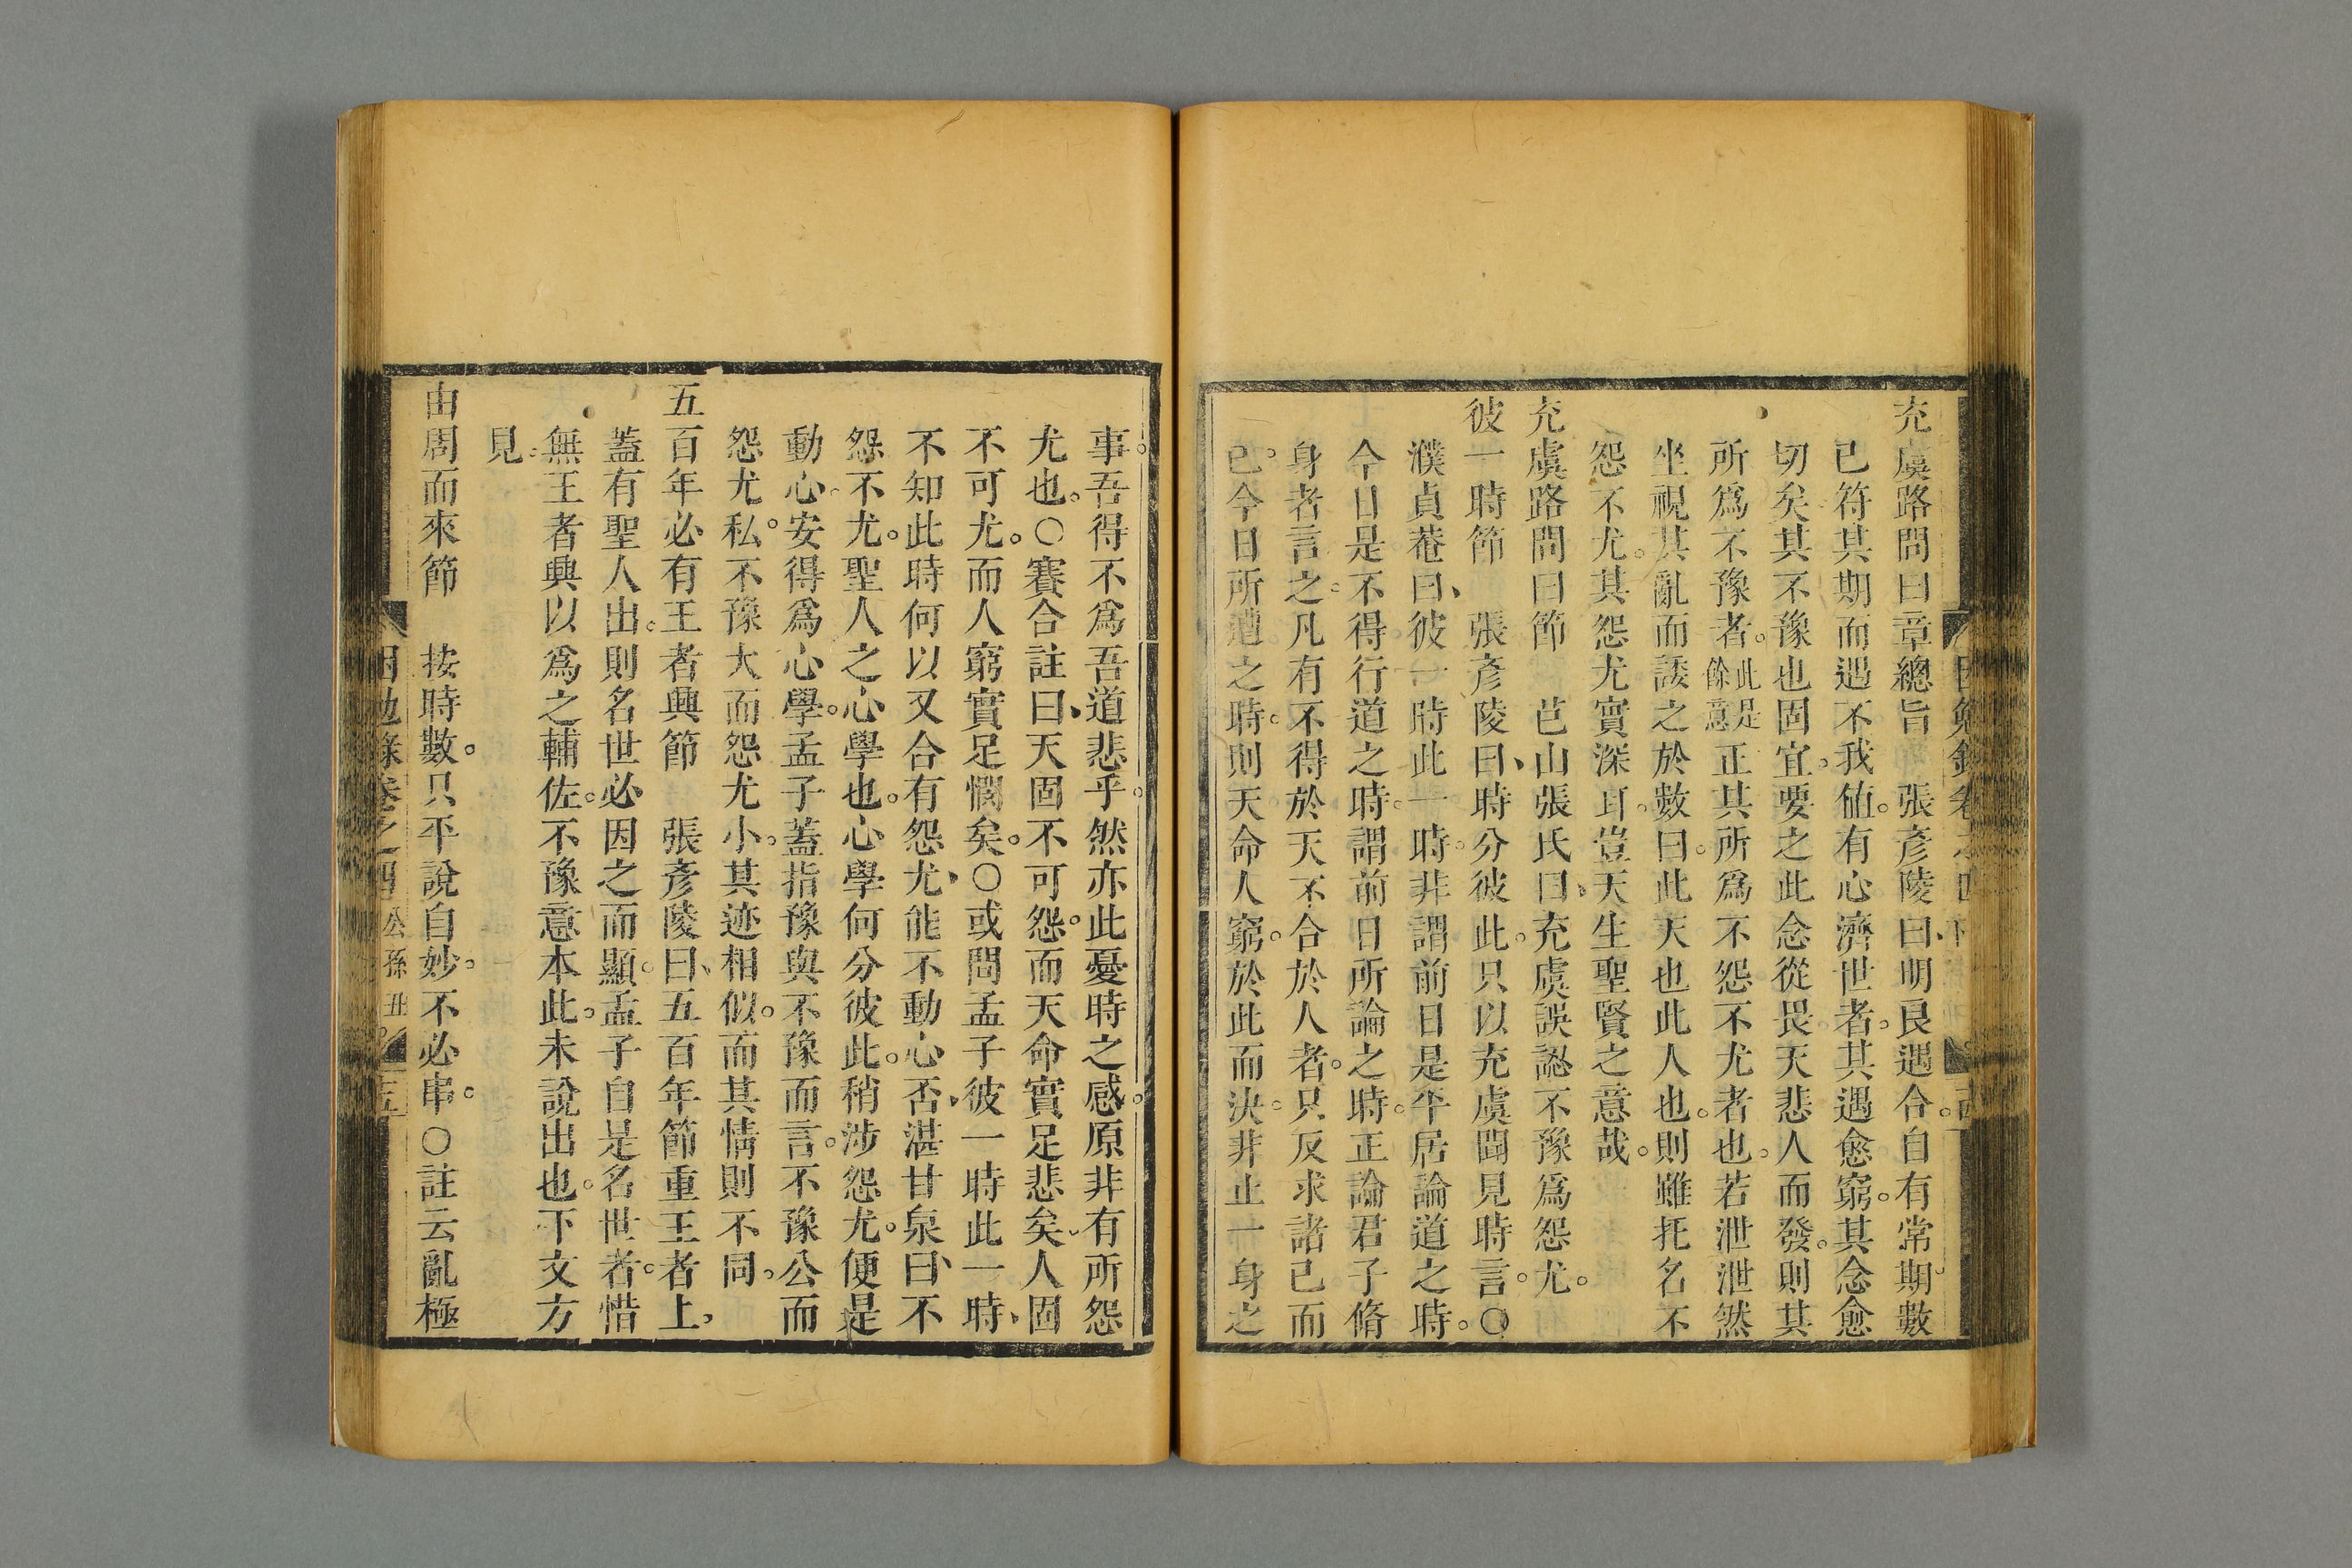 充虞路問曰章總旨　張彥陵曰、明良遇合。自有常期、數
已符其期而遇不我値。有心濟世者。其遇愈窮。其念愈
切矣其不豫也固宜。要之此念從畏天悲人而發。則其
所爲不豫者。此是餘意正其所爲不怨不尤者也。若泄泄然
坐視其亂而諉之於數曰。此天也此人也。則雖托名不
怨不尤。其怨尤實深耳。豈天生聖賢之意哉。
充虞路問曰節　芑山張氏曰、充虞誤認不豫爲怨尤。
彼一時節　張彥陵曰、時分彼此。只以充虞聞見時言。○
濮貞菴曰、彼一時此一時。非謂前日是平居論道之時。
今日是不得行道之時。謂前日所論之時。正論君子脩
身者言之。凡有不得於天不合於人者。只反求諸己而
已。今日所遭之時。則天命人窮。於此而決。非止一身之
事。吾得不爲吾道悲乎。然亦此憂時之感。原非有所怨
尤也。○賽合註曰、天固不可怨。而天命實足悲矣、人固
不可尤。而人窮實足憫矣。○或問孟子彼一時此一時、
不知此時何以又合有怨尤、能不動心否、湛甘泉曰、不
怨不尤。聖人之心學也。心學何分彼此。稍涉怨尤。便是
動心。安得爲心學。孟子蓋指豫與不豫而言。不豫公而
怨尤私。不豫大而怨尤小。其迹相似。而其情則不同。
五百年必有王者興節　張彥陵曰、五百年節重王者上、
蓋有聖人出。則名世必因之而顯。孟子自是名世者。惜
無王者興以爲之輔佐。不豫意本此。未說出也。下文方
見。
由周而來節　按時數。只平說自妙。不必串。○註云亂極
困勉錄卷之四　公孫丑　五